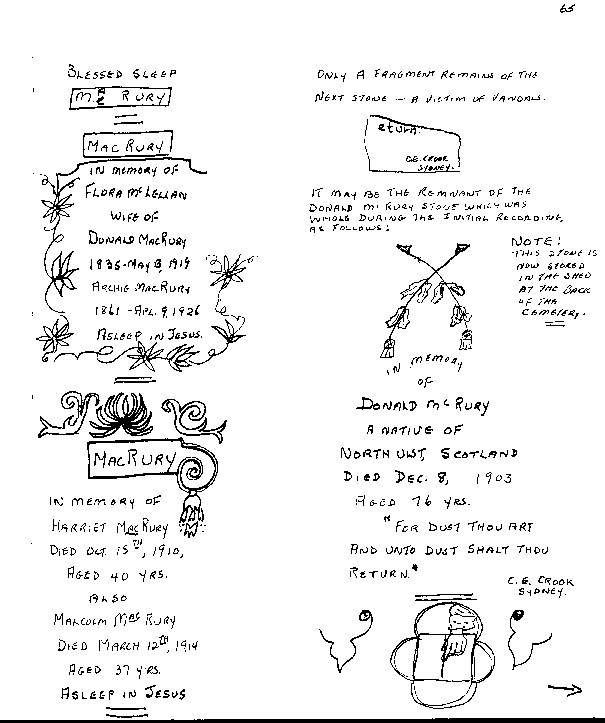 65
BLESSED SLEEP
RURY
MACRURY
IN MEMORY OF
FLORA MCLELLAN
WIFE OF
DONALD MACRURY
1835-MAY 8, 1919
ARCHIE MACRURY
1861-APL. 9, 1926
ASLEEP IN JESUS.
MACRURY
IN MEMORY OF
HARRIET MACRURY
DIED OCT. 15TH, 1910,
AGED 40 YRS.
ALSO
MALCOLM MACRURY
DIED MARCH 12TH, 1914
AGED 37 YRS.
ASLEEP IN JESUS
ONLY A FRAGMENT REMAINS OF THE
NEXT STONE - A VICTIM OF VANDALS.
eturn.
C.E. CROOK
SYDNEY.
IT MAY BE THE REMNANT OF THE
DONALD MCRURY STONE WHICH WAS
WHOLE DURING THE INITIAL RECORDING,
AS FOLLOWS:
NOTE!
THIS STONE IS
NOW STORED
IN THE SHED
AT THE BACK
OF THE
CEMETERY.
IN MEMORY
OF
DONALD MCRURY
A NATIVE OF
NORTH UIST, SCOTLAND
DIED DEC. 8, 1903
AGED 76 YRS.
"FOR DUST THOU ART
AND UNTO DUST SHALT THOU
RETURN."
C.E. CROOK
SYDNEY.